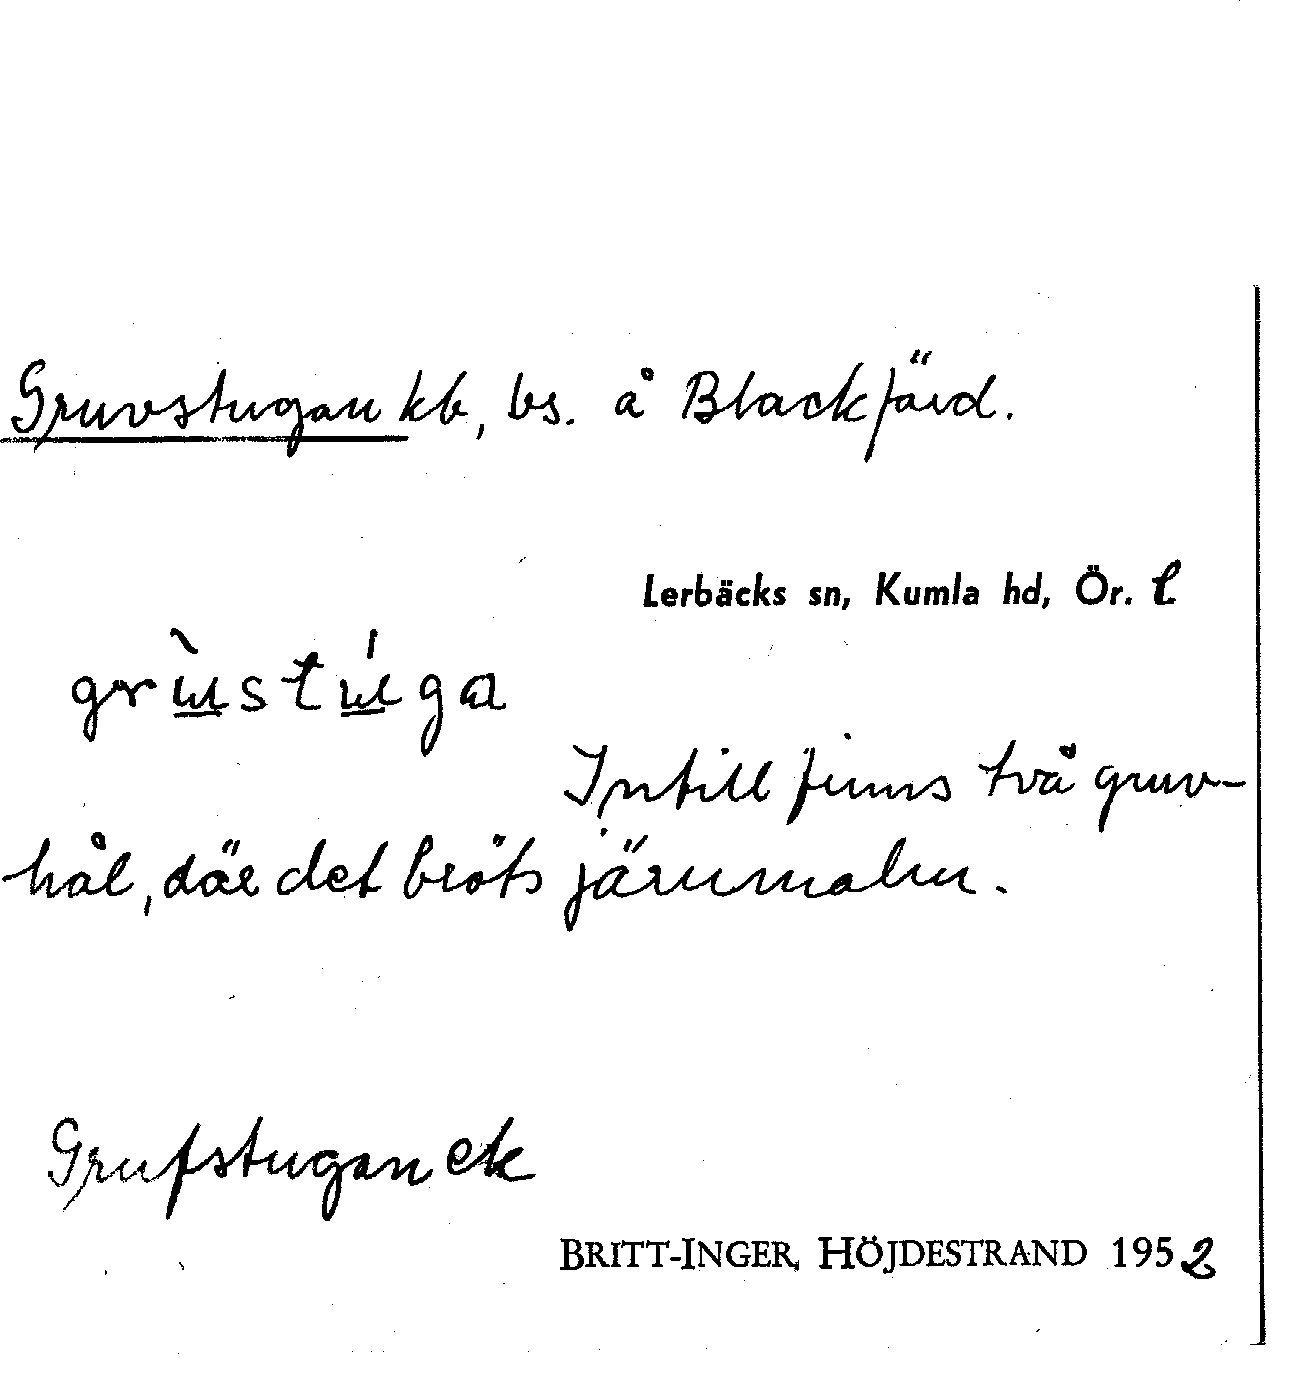 Gruvstugan kb, bs. å Blackfärd.
Lerbäcks sn, Kumla hd, Ör. l
grùstúga
Intill finns två gruv-
hål, där det bröts järnmalm.
Grufstugan ek
BRITT-INGER, HÖJDESTRAND 1952